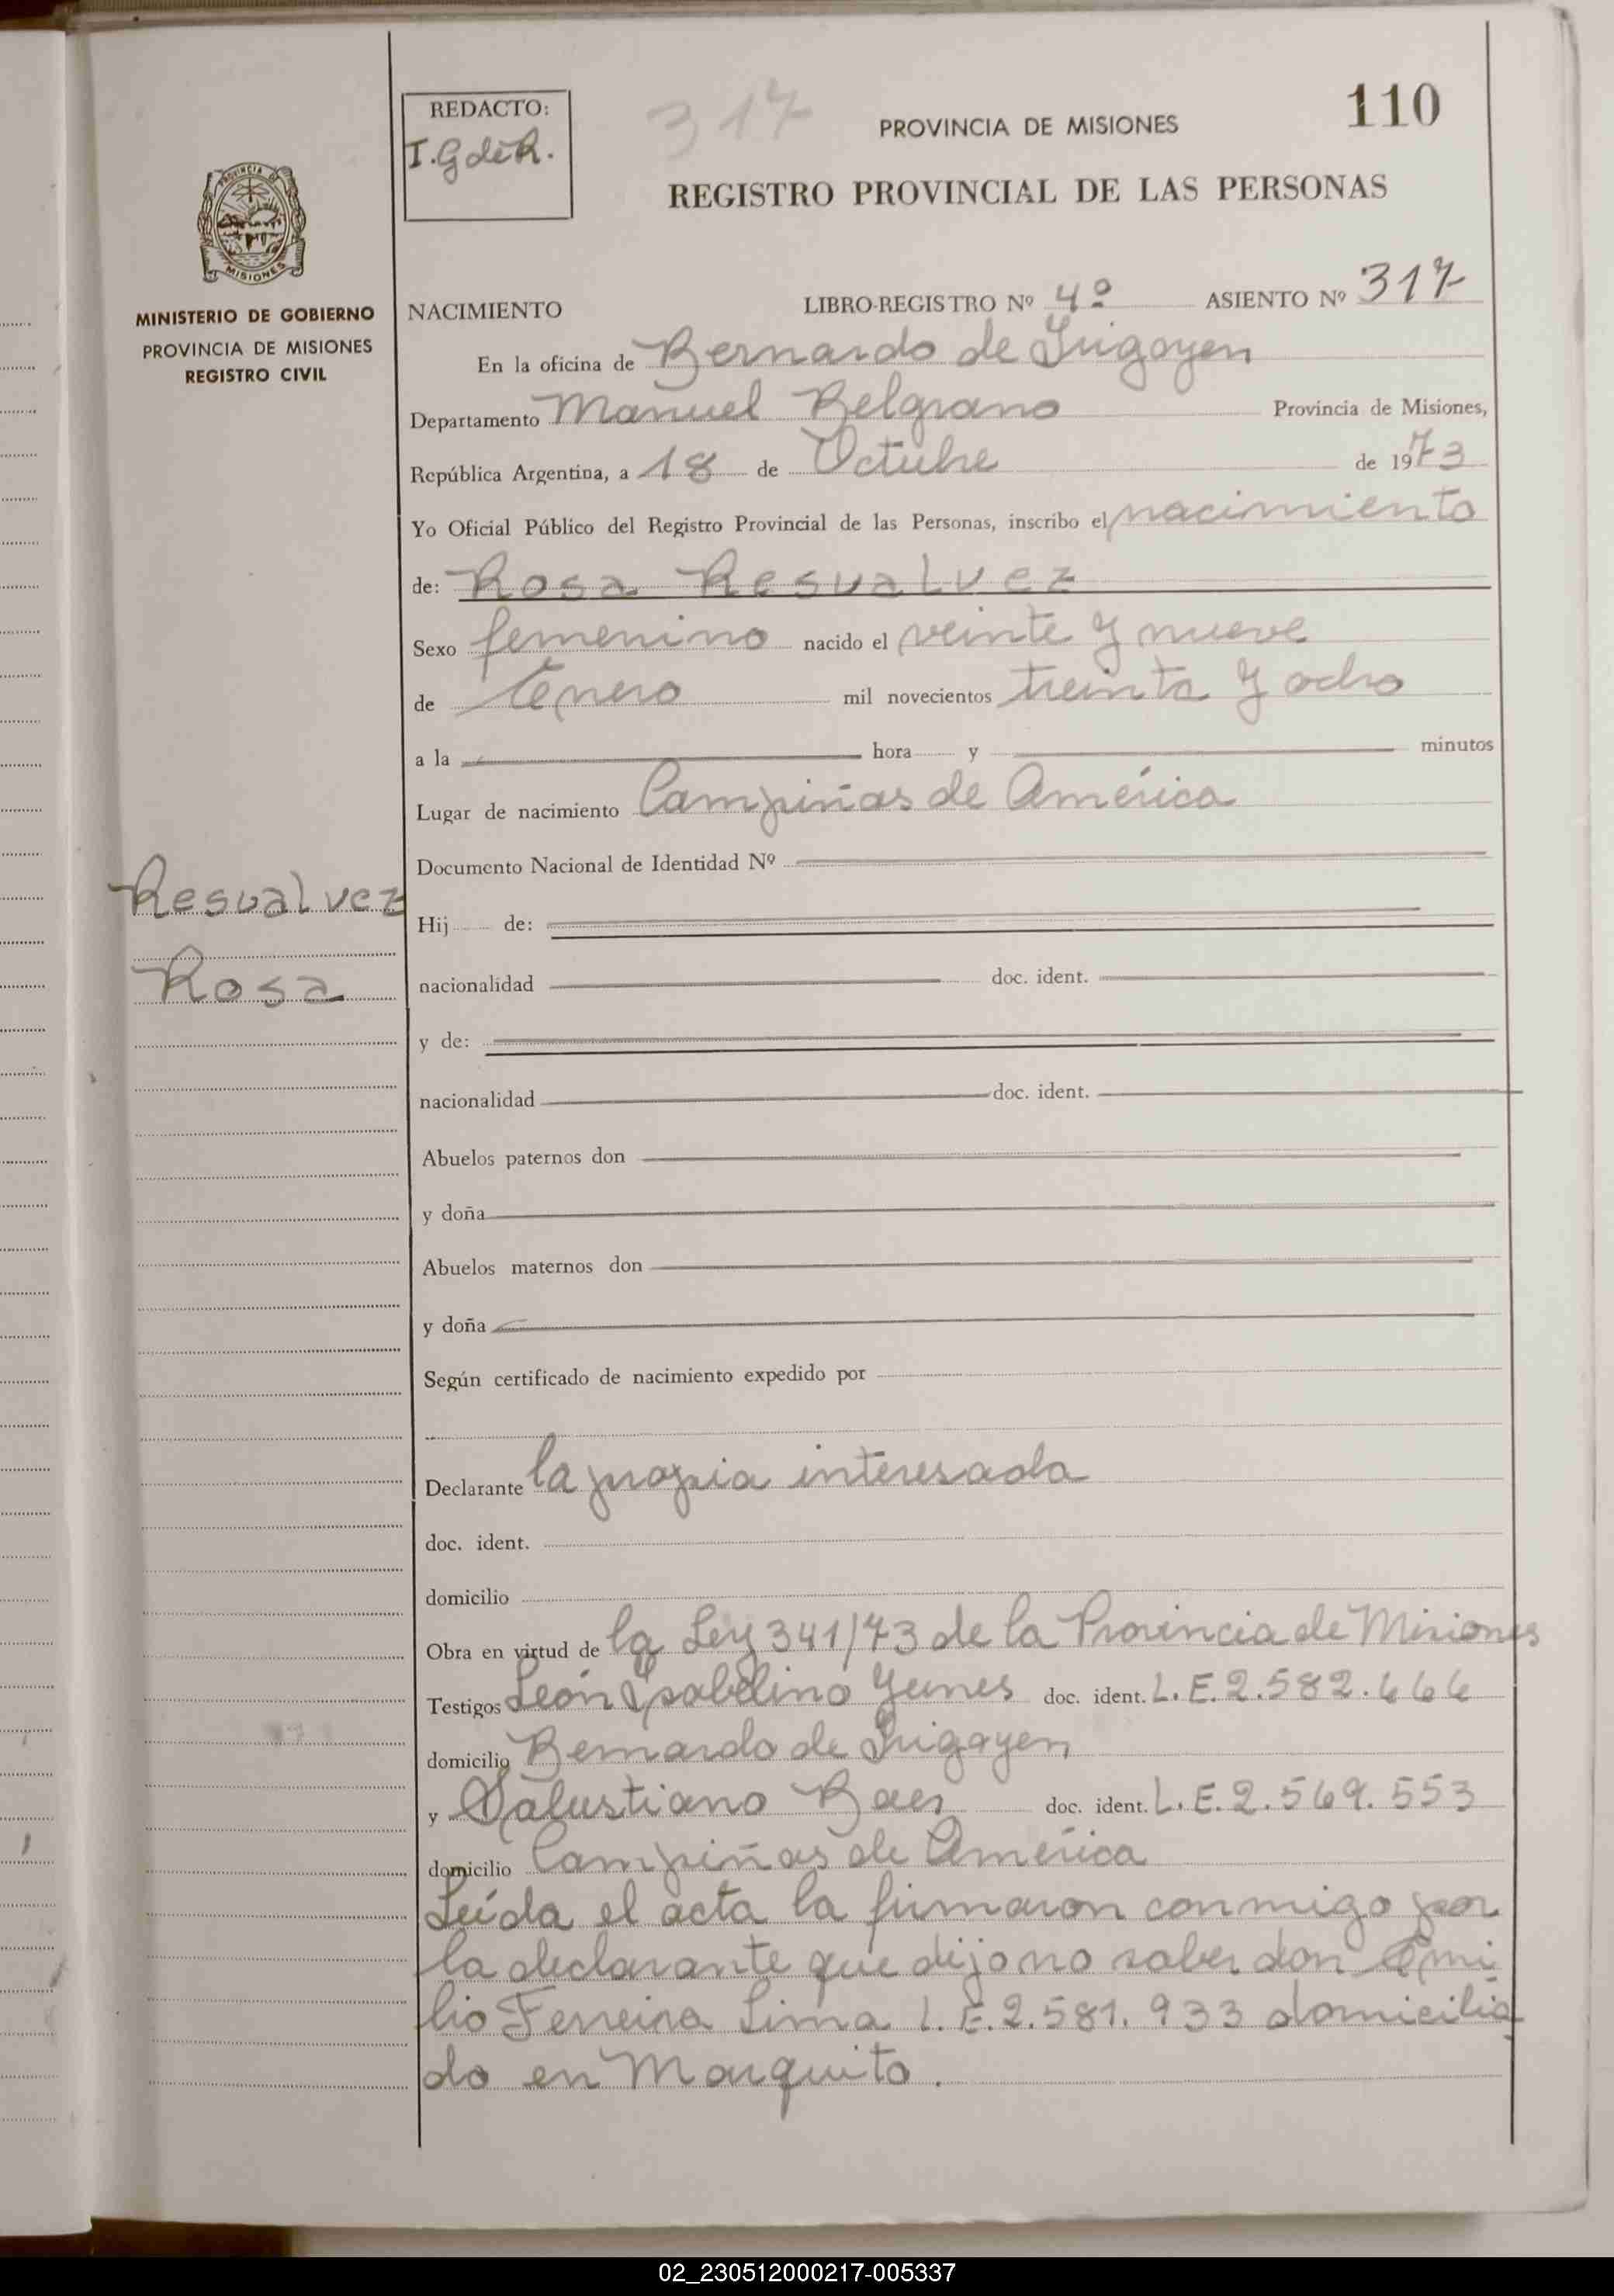 REDACTO:
I. G de R.
317
PROVINCIA DE MISIONES
110
REGISTRO PROVINCIAL DE LAS PERSONAS
PROVINCIA DE
MISIONES
MINISTERIO DE GOBIERNO
PROVINCIA DE MISIONES
REGISTRO CIVIL
NACIMIENTO LIBRO-REGISTRO Nº 4º ASIENTO Nº 317
En la oficina de Bernardo de Irigoyen
Departamento Manuel Belgrano Provincia de Misiones,
República Argentina, a 18 de Octubre de 1973
Yo Oficial Público del Registro Provincial de las Personas, inscribo el nacimiento
de: Rosa Resualvez
Sexo femenino nacido el veinte y nueve
de Enero mil novecientos treinta y ocho
a la hora y minutos
Lugar de nacimiento Campiñas de América
Documento Nacional de Identidad Nº
Resualvez
Rosa
Hij de:
nacionalidad doc. ident.
y de:
nacionalidad doc. ident.
Abuelos paternos don
y doña
Abuelos maternos don
y doña
Según certificado de nacimiento expedido por
Declarante la propia interesada
doc. ident.
domicilio
Obra en virtud de la Ley 341/73 de la Provincia de Misiones
Testigos León Ysabelino Yunes doc. ident. L. E. 2.582.666
domicilio Bernardo de Irigoyen
y Salustiano Baez doc. ident. L. E. 2.569.553
domicilio Campiñas de América
Leída el acta la firmaron conmigo por
la declarante que dijo no saber don Emi
lio Ferreira Lima L. E. 2.581.933 domicilia
do en Marquito.
02_230512000217-005337